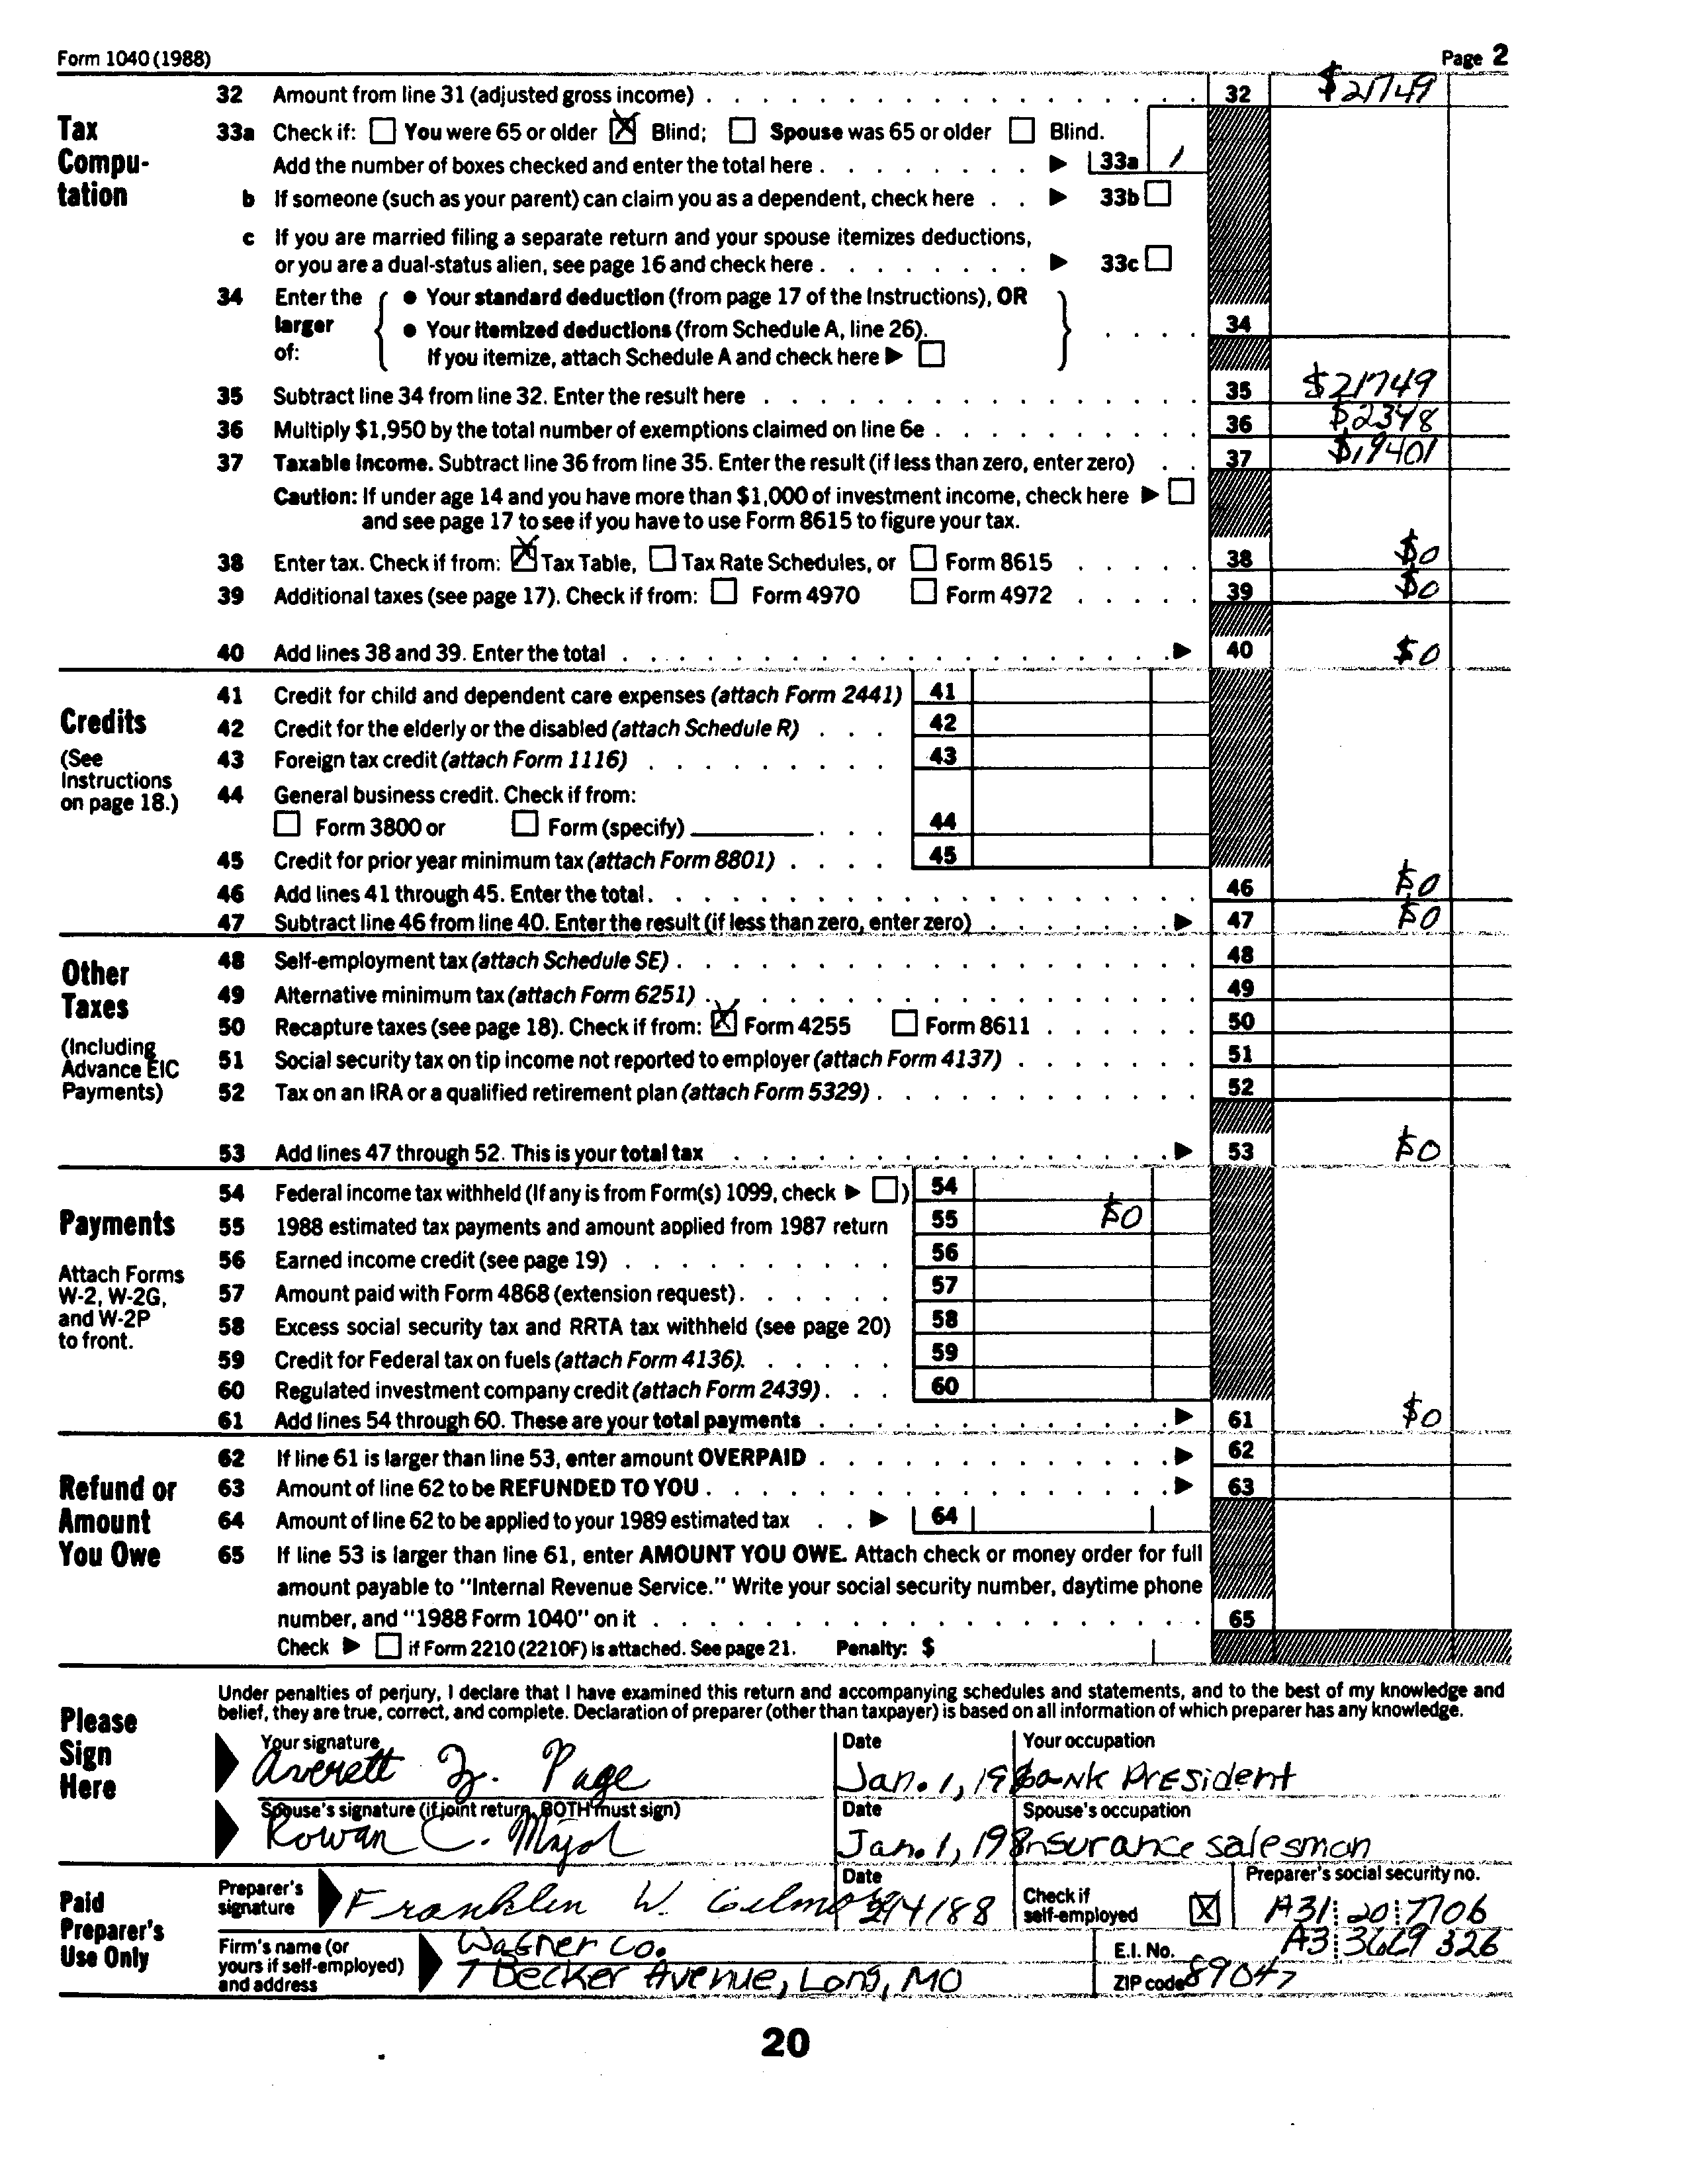 Form 1040 (1988) Page 2
32 Amount from line 31 (adjusted gross income) . . . 32 $21749
Tax Computation
33a Check if: You were 65 or older X Blind; Spouse was 65 or older Blind.
Add the number of boxes checked and enter the total here . . . ▶ 33a 1
b If someone (such as your parent) can claim you as a dependent, check here . . ▶ 33b
c If you are married filing a separate return and your spouse itemizes deductions,
or you are a dual-status alien, see page 16 and check here . . . ▶ 33c
34 Enter the larger of: { • Your standard deduction (from page 17 of the Instructions), OR
• Your itemized deductions (from Schedule A, line 26). } . . . . 34
If you itemize, attach Schedule A and check here ▶
35 Subtract line 34 from line 32. Enter the result here . . . 35 $21749
36 Multiply $1,950 by the total number of exemptions claimed on line 6e . . . 36 $2348
37 Taxable income. Subtract line 36 from line 35. Enter the result (if less than zero, enter zero) . . 37 $19401
Caution: If under age 14 and you have more than $1,000 of investment income, check here ▶
and see page 17 to see if you have to use Form 8615 to figure your tax.
38 Enter tax. Check if from: X Tax Table, Tax Rate Schedules, or Form 8615 . . . 38 $0
39 Additional taxes (see page 17). Check if from: Form 4970 Form 4972 . . . 39 $0
40 Add lines 38 and 39. Enter the total . . . ▶ 40 $0
Credits
(See Instructions on page 18.)
41 Credit for child and dependent care expenses (attach Form 2441) 41
42 Credit for the elderly or the disabled (attach Schedule R) . . . 42
43 Foreign tax credit (attach Form 1116) . . . 43
44 General business credit. Check if from:
Form 3800 or Form (specify) ______ . . . 44
45 Credit for prior year minimum tax (attach Form 8801) . . . . 45
46 Add lines 41 through 45. Enter the total . . . 46 $0
47 Subtract line 46 from line 40. Enter the result (if less than zero, enter zero) . . . ▶ 47 $0
Other Taxes
(Including Advance EIC Payments)
48 Self-employment tax (attach Schedule SE) . . . 48
49 Alternative minimum tax (attach Form 6251) . . . 49
50 Recapture taxes (see page 18). Check if from: X Form 4255 Form 8611 . . . 50
51 Social security tax on tip income not reported to employer (attach Form 4137) . . . 51
52 Tax on an IRA or a qualified retirement plan (attach Form 5329) . . . 52
53 Add lines 47 through 52. This is your total tax . . . ▶ 53 $0
Payments
Attach Forms W-2, W-2G, and W-2P to front.
54 Federal income tax withheld (If any is from Form(s) 1099, check ▶ ) 54
55 1988 estimated tax payments and amount applied from 1987 return 55 $0
56 Earned income credit (see page 19) . . . 56
57 Amount paid with Form 4868 (extension request) . . . 57
58 Excess social security tax and RRTA tax withheld (see page 20) 58
59 Credit for Federal tax on fuels (attach Form 4136). . . . 59
60 Regulated investment company credit (attach Form 2439) . . . 60
61 Add lines 54 through 60. These are your total payments . . . ▶ 61 $0
Refund or Amount You Owe
62 If line 61 is larger than line 53, enter amount OVERPAID . . . ▶ 62
63 Amount of line 62 to be REFUNDED TO YOU . . . ▶ 63
64 Amount of line 62 to be applied to your 1989 estimated tax . . ▶ 64
65 If line 53 is larger than line 61, enter AMOUNT YOU OWE. Attach check or money order for full
amount payable to "Internal Revenue Service." Write your social security number, daytime phone
number, and "1988 Form 1040" on it . . . 65
Check ▶ if Form 2210 (2210F) is attached. See page 21. Penalty: $
Please Sign Here
Under penalties of perjury, I declare that I have examined this return and accompanying schedules and statements, and to the best of my knowledge and
belief, they are true, correct, and complete. Declaration of preparer (other than taxpayer) is based on all information of which preparer has any knowledge.
Your signature Date Your occupation
Averett Page Jan. 1, 19 bank President
Spouse's signature (if joint return, BOTH must sign) Date Spouse's occupation
Rowan C. Major Jan. 1, 198 insurance salesman
Paid Preparer's Use Only
Preparer's signature Date Check if self-employed X Preparer's social security no.
Franklin W. Gilmore 2/4/88 A31 20 7706
Firm's name (or yours if self-employed) and address
Wagner Co. E.I. No. A3 3629 326
7 Becker Avenue, Long, MO ZIP code 89047
20